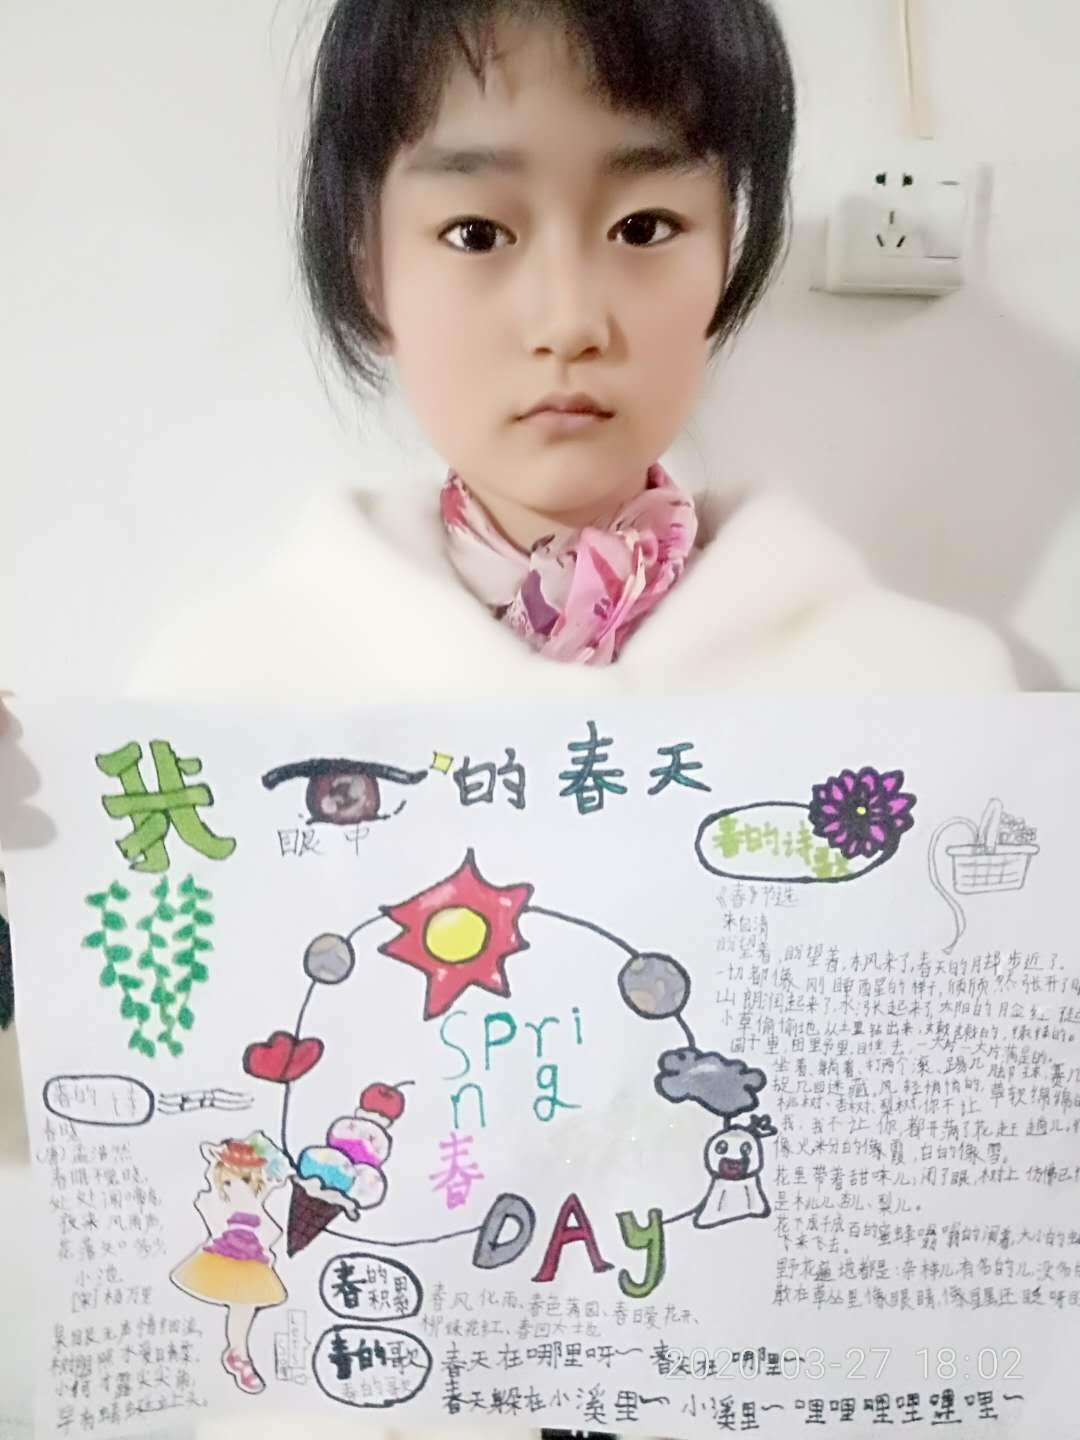 我
的春天
眼中
春的诗歌
《春》节选
朱自清
盼望着,盼望着,东风来了,春天的脚步近了。
一切都像刚睡醒的样子,欣欣然张开了
山朗润起来了,水涨起来了,太阳的脸红
小草偷偷地从土里钻出来,嫩嫩的,绿绿的。
园子里,田野里,瞧去,一大片一大片满是的。
坐着,躺着,打两个滚,踢几脚球,赛几
捉几回迷藏。风轻悄悄的,草软绵绵的
桃树、杏树、梨树,你不让
我,我不让你,都开满了花赶趟儿。
像火,粉的像霞,白的像雪。
花里带着甜味儿;闭了眼,树上仿佛已
是桃儿、杏儿、梨儿。
花下成千成百的蜜蜂嗡嗡的闹着,大小的
飞来飞去。
野花遍地都是:杂样儿,有名的儿,没名的
散在草丛里像眼睛,像星星,还眨呀眨
Spri
ng
春
DAy
春的诗
春晓
(唐)孟浩然
春眠不觉晓,
处处闻啼鸟。
夜来风雨声,
花落知多少
小池
[宋]杨万里
泉眼无声惜细流,
树阴照水爱晴柔。
小荷才露尖尖角,
早有蜻蜓立上头。
春的积累
春风化雨、春色满园、春日爱花开、
柳绿花红、春回大地
春的歌
春天在哪里呀~春天在哪里~
春天躲在小溪里~小溪里~哩哩哩哩哩哩~
2020-03-27 18:02